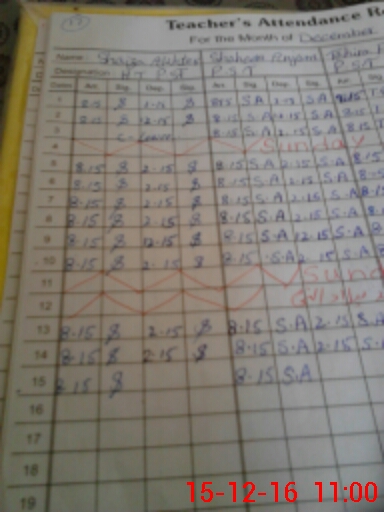 17
Teacher's Attendance Re
For the Month of December
Name Shahnam Anjum
Designation HT PST P.S.T P.S.T
Dates Arr. Sig. Dep. Sig. Arr. Sig. Dep. Sig. Arr. Sig.
1 8.15 2.15 8.15 S.A 2.15 S.A 8.15
2 8.15 12.15 8.15 S.A 12.15 S.A 8.15
3 C-Leave 8.15 S.A 2.15 S.A 8.15
4 Sunday
5 8.15 2.15 8.15 S.A 2.15 S.A 8.15
6 8.15 2.15 8.15 S.A 2.15 S.A 8.15
7 8.15 2.15 8.15 S.A 2.15 S.A 8.15
8 8.15 2.15 8.15 S.A 2.15 S.A 8.15
9 8.15 12.15 8.15 S.A 12.15 S.A 8.15
10 8.15 2.15 8.15 S.A 2.15 S.A 8.15
11 Sund
12
13 8.15 2.15 8.15 S.A 2.15 S.A
14 8.15 2.15 8.15 S.A 2.15 S.A
15 8.15 8.15 S.A
16
17
18
19
15-12-16 11:00